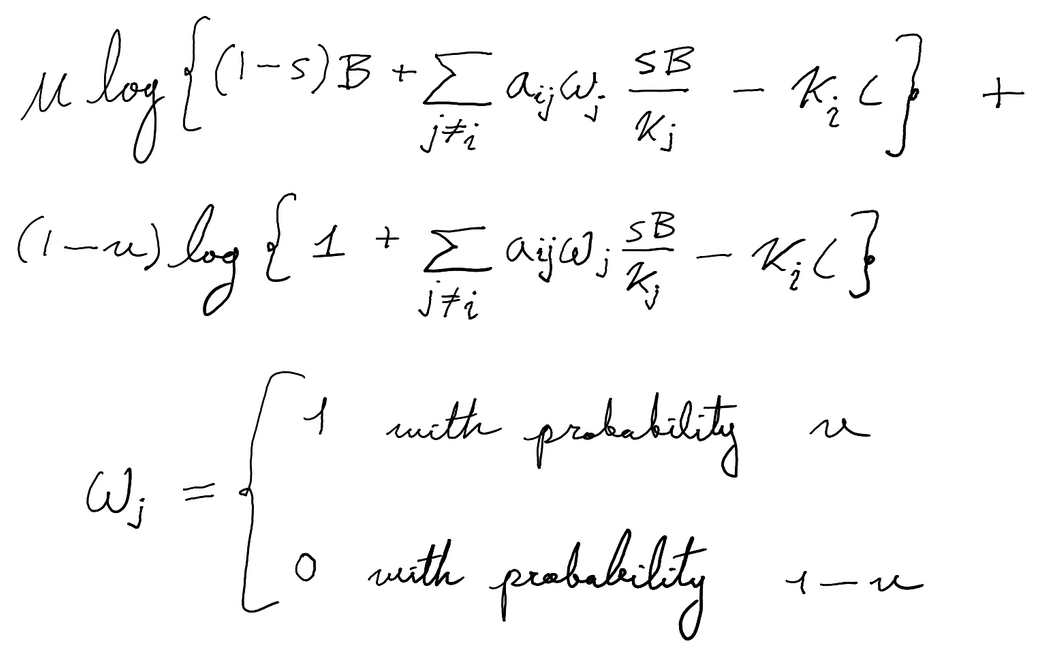 u log { (1-s)B + ∑_{j≠i} a_{ij} ω_j \frac{sB}{K_j} - K_i C } +
(1-u) log { 1 + ∑_{j≠i} a_{ij} ω_j \frac{sB}{K_j} - K_i C }
ω_j = { 1 with probability u
0 with probability 1-u